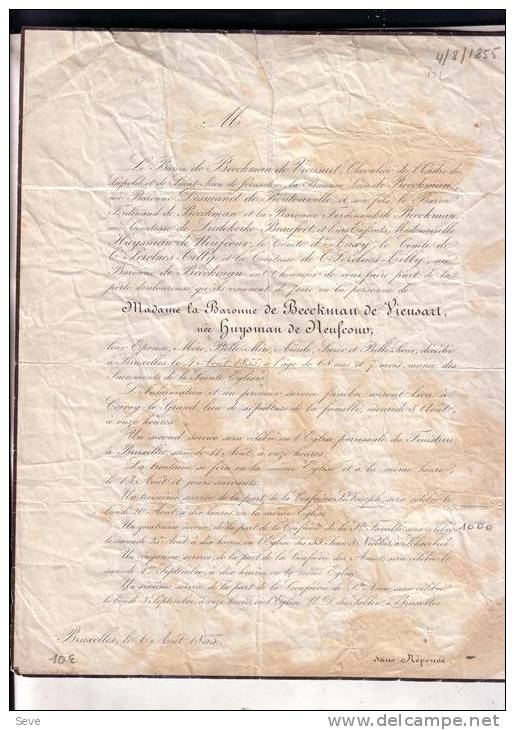 4/8/1855
M
Le Baron de Beeckman de Vieusart, Chevalier de l'Ordre de
Léopold et de Saint Jean de Jérusalem, la Baronne Léon de Beeckman
née Baronne Desmanet de Boutonville et son fils, le Baron
Ferdinand de Beeckman et la Baronne Ferdinand de Beeckman,
née Comtesse de Liedekerke Beaufort et leurs Enfants, Mademoiselle
Huysman de Neufcour, le Comte de le Comte de
T'Serclaes-Tilly et la Comtesse de T'Serclaes Tilly, née
Baronne de Beeckman ont l'honneur de vous faire part de la
perte douloureuse qu'ils viennent de faire en la personne de
Madame la Baronne de Beeckman de Vieusart,
née Huysman de Neufcour,
leur Epouse, Mère, Belle-Mère, Aïeule, Sœur et Belle Sœur, décédée
à Bruxelles le 4 Août 1855, à l'âge de 68 ans et 7 mois, munie des
Sacrements de la Sainte Eglise.
L'Inhumation et un premier service funèbre auront lieu à
Corroy le Grand, lieu de sépulture de la famille, mercredi 8 Août,
à onze heures.
Un second service sera célébré en l'Eglise paroissiale du Finisterre
à Bruxelles, samedi 11 Août, à onze heures.
La trentaine se fera en la même Eglise et à la même heure,
le 13 Août et jours suivants.
Un troisième service de la part de la Confrérie St Joseph, sera célébré le
lundi 20 Août à dix heures en la même Eglise.
Un quatrième service de la part de la Confrérie de la Ste Famille sera célébré
1000
le samedi 25 Août à dix heures, en l'Eglise des SS. Jean & Nicolas, à Schaerbeek.
Un cinquième service de la part de la Confrérie des Ames, sera célébré le
samedi 1er Septembre, à dix heures en la même Eglise.
Un sixième service de la part de la Confrérie de Ste Anne, sera célébré
le lundi 3 Septembre, à onze heures, en l'Eglise N. D. du Sablon, à Bruxelles.
Bruxelles, le 6 Août 1855.
10 €
sans Réponse
Seve
©delcampe.net